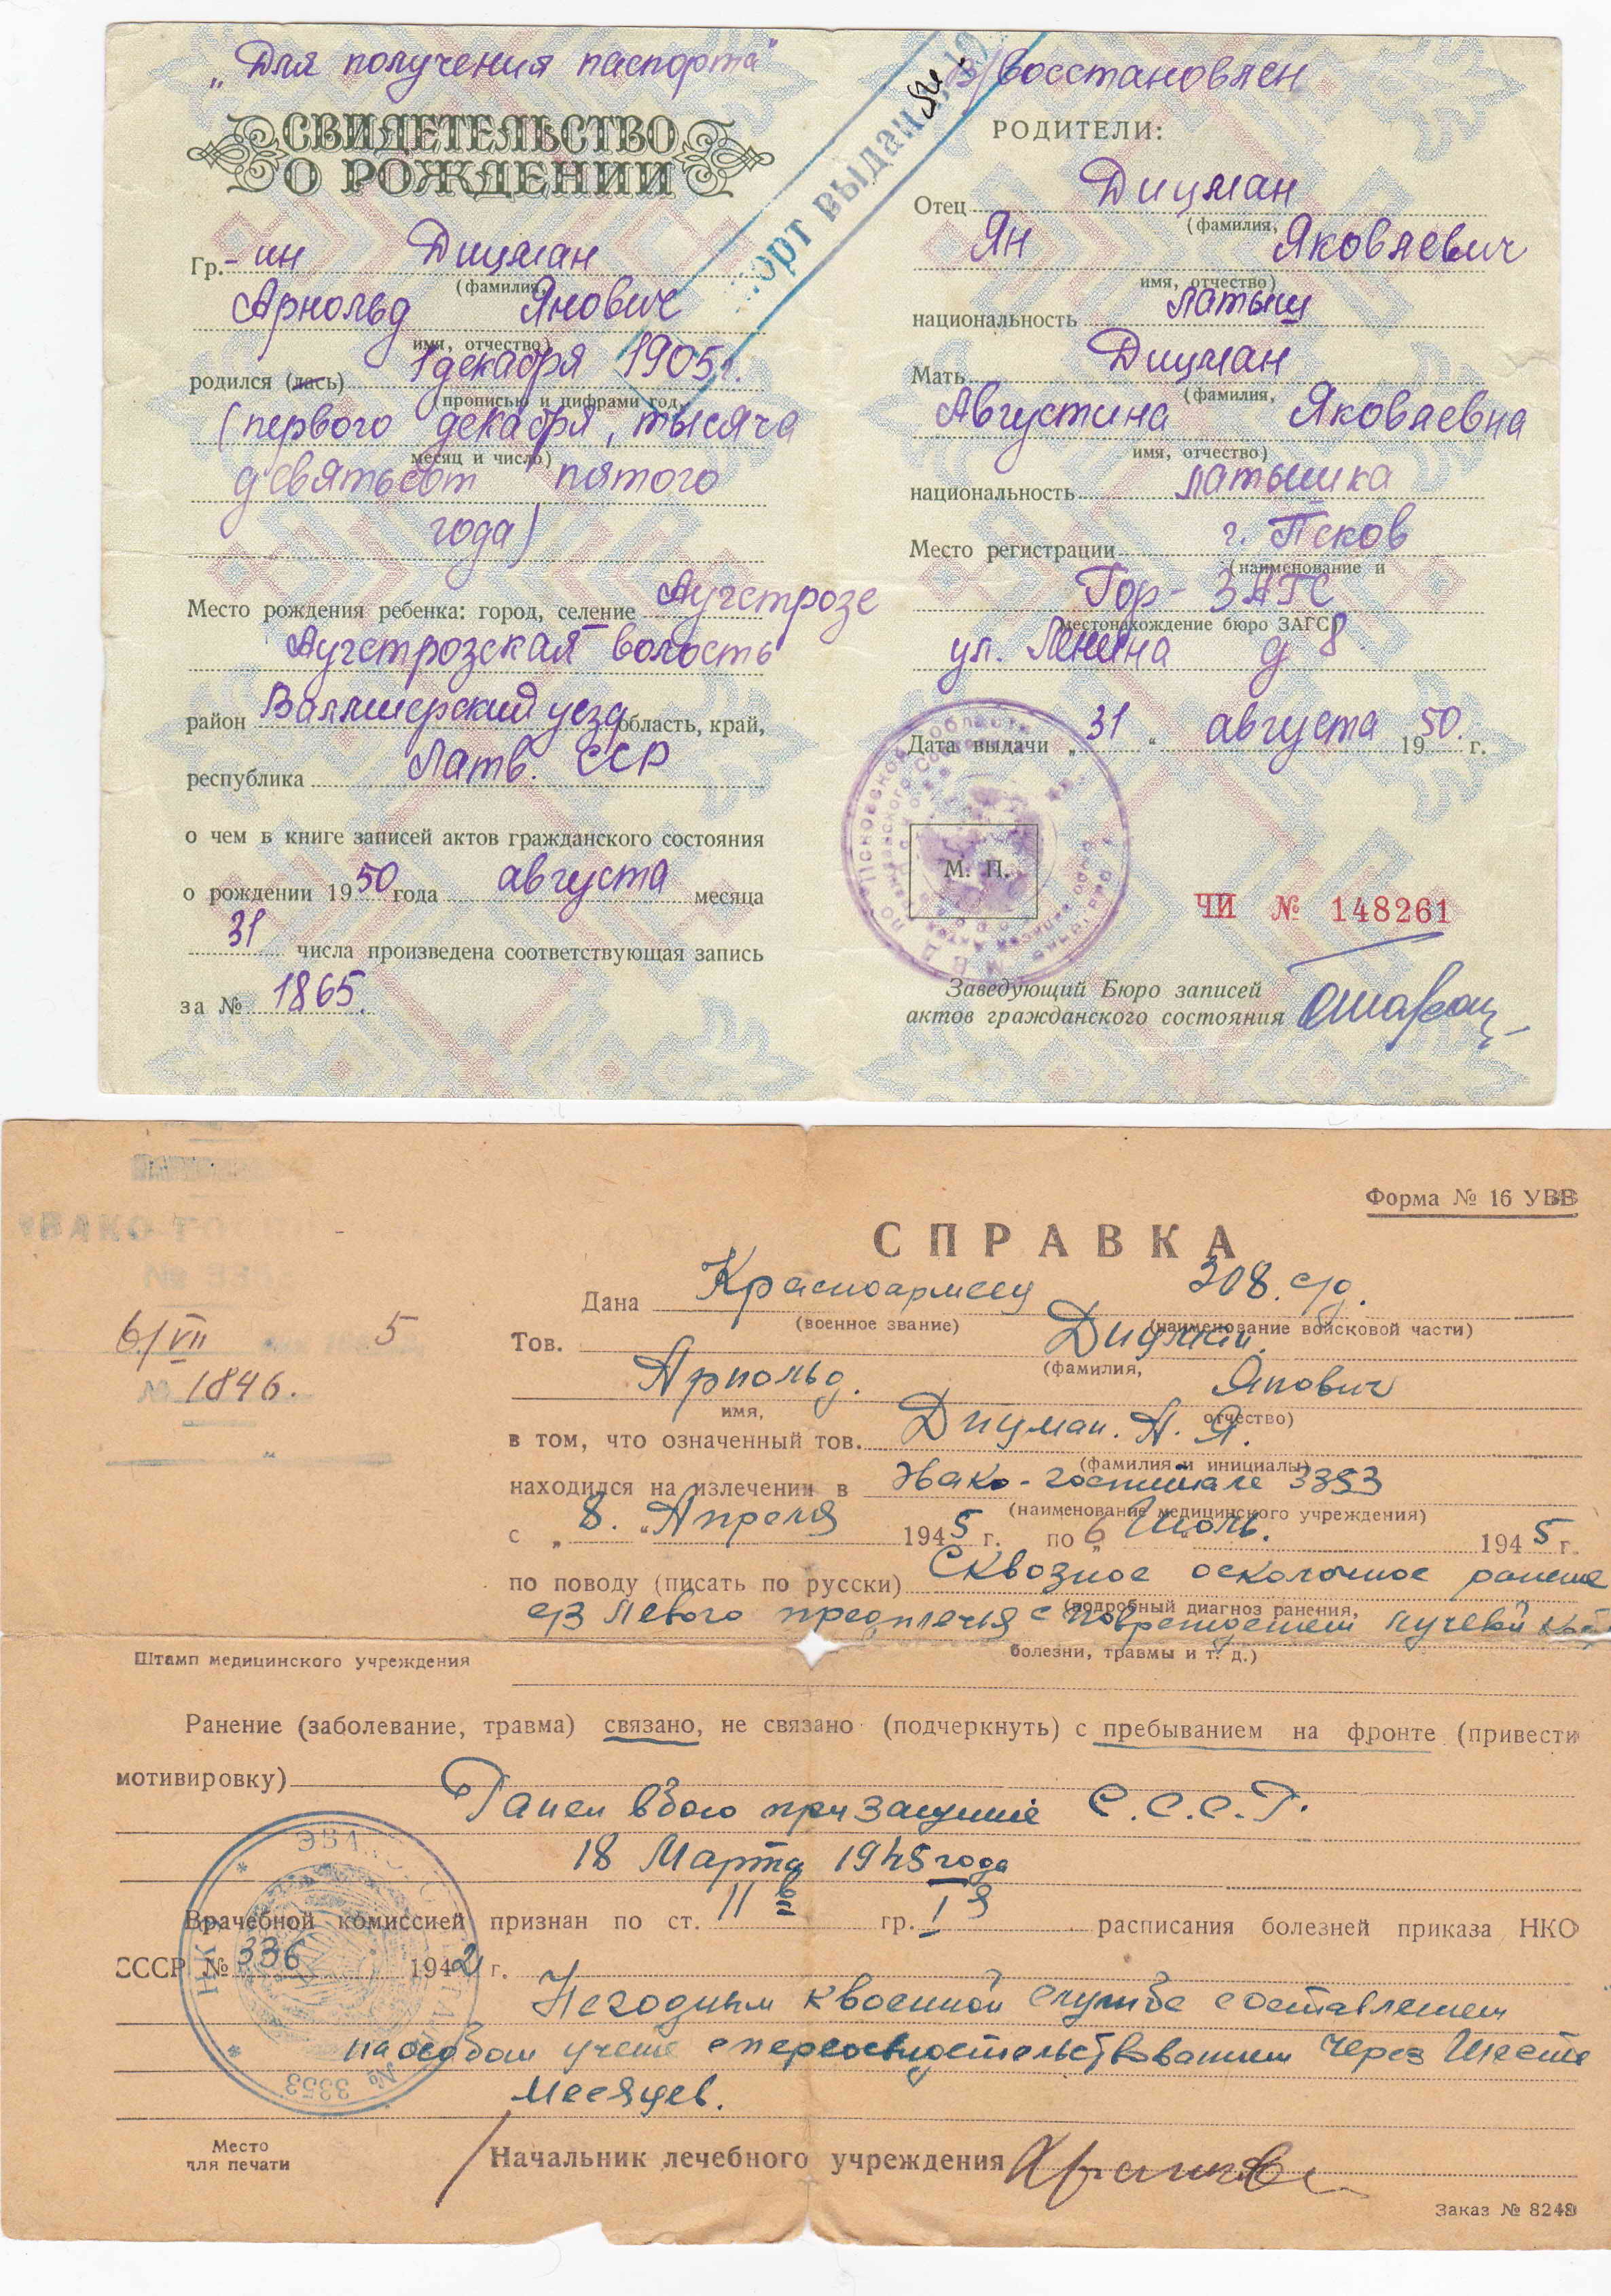 „Для получения паспорта"
СВИДЕТЕЛЬСТВО
О РОЖДЕНИИ
Гр.-ин Дицман
(фамилия,
Арнольд Янович
имя, отчество)
родился (лась) 1 декабря 1905 г.
(прописью и цифрами год,
(первого декабря, тысяча
месяц и число)
девятьсот пятого
года)
Место рождения ребенка: город, селение Аугстрозе
Аугстрозская волость
район Валмиерский уезд область, край,
республика Латв. ССР
о чем в книге записей актов гражданского состояния
о рождении 1950 года августа месяца
31 числа произведена соответствующая запись
за № 1865.
порт выдан
восстановлен
РОДИТЕЛИ:
Отец Дицман
(фамилия,
Ян Яковлевич
имя, отчество)
национальность латыш
Мать Дицман
(фамилия,
Августина Яковлевна
имя, отчество)
национальность латышка
Место регистрации г. Псков
(наименование и
Гор-ЗАГС
местонахождение бюро ЗАГС)
ул. Ленина д 8
Дата выдачи „31" августа 1950 г.
М. П.
ЧИ № 148261
Заведующий Бюро записей
актов гражданского состояния
Форма № 16 УВВ
СПРАВКА
6/VII 5
№ 1846.
Дана Красноармеец 308. с/д.
(военное звание) (наименование войсковой части)
Тов. Дицман.
(фамилия,
Арнольд. Янович
имя, отчество)
в том, что означенный тов. Дицман. А. Я.
(фамилия и инициалы)
находился на излечении в Эвако-госпитале 3353
(наименование медицинского учреждения)
с „8." Апреля 1945 г. по „6" Июль. 1945 г.
по поводу (писать по русски) Сквозное осколочное ранение
(подробный диагноз ранения,
с/з левого предплечья с повреждением лучевой
болезни, травмы и т. д.)
Штамп медицинского учреждения
Ранение (заболевание, травма) связано, не связано (подчеркнуть) с пребыванием на фронте (привести
мотивировку)
Ранен в бою при защите С.С.С.Р.
18 Марта 1945 года
Врачебной комиссией признан по ст. 11 в гр. I я расписания болезней приказа НКО
СССР № 336 1942 г.
Негодным к военной службе с оставлением
на особом учете с переосвидетельствованием через Шесть
Месяцев.
ЭВАКО
НК
№ 3353
Место
для печати
Начальник лечебного учреждения
Заказ № 8248